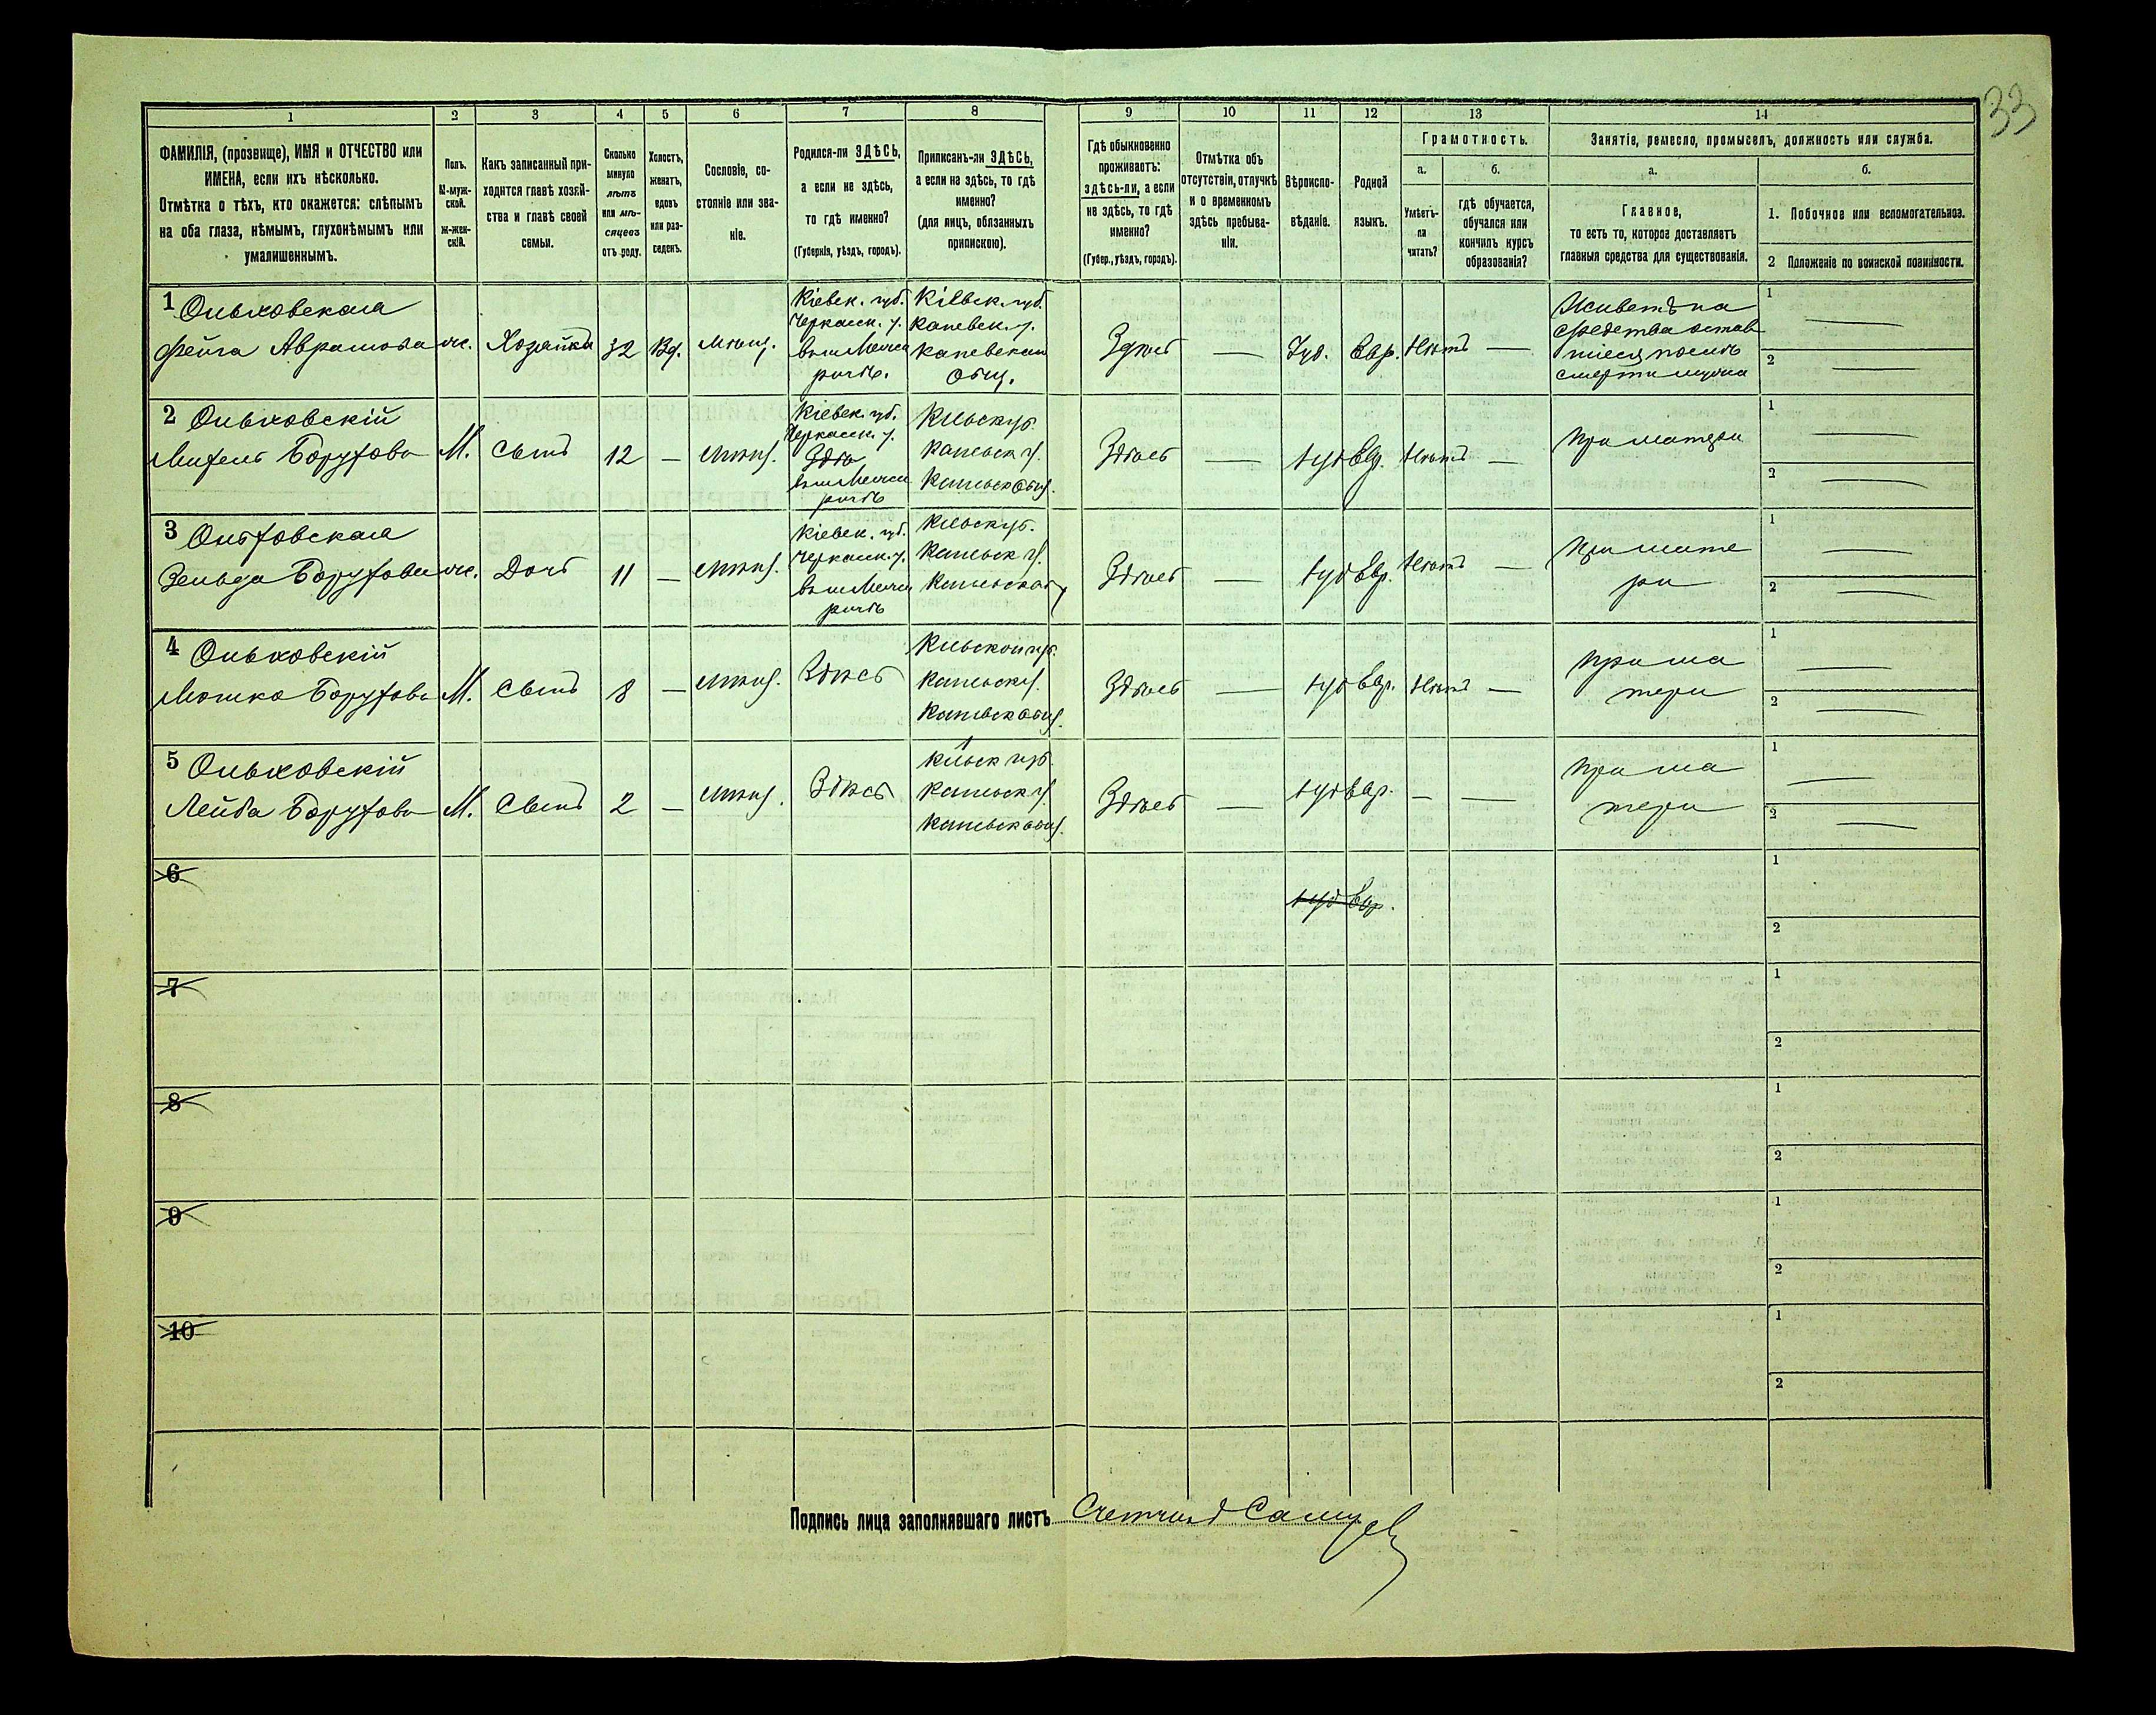 33
1 2 3 4 5 6 7 8 9 10 11 12 13 14
ФАМИЛІЯ, (прозвище), ИМЯ и ОТЧЕСТВО или
ИМЕНА, если ихъ нѣсколько.
Отмѣтка о тѣхъ, кто окажется: слѣпымъ
на оба глаза, нѣмымъ, глухонѣмымъ или
умалишеннымъ.
Полъ.
М-муж-
ской.
ж-жен-
скій.
Какъ записанный при-
ходится главѣ хозяй-
ства и главѣ своей
семьи.
Сколько
минуло
лѣтъ
или мѣ-
сяцевъ
отъ роду.
Холостъ,
женатъ,
вдовъ
или раз-
веденъ.
Сословіе, со-
стояніе или зва-
ніе.
Родился-ли ЗДѢСЬ,
а если не здѣсь,
то гдѣ именно?
(Губернія, уѣздъ, городъ).
Приписанъ-ли ЗДѢСЬ,
а если не здѣсь, то гдѣ
именно?
(для лицъ, обязанныхъ
припискою).
Гдѣ обыкновенно
проживаетъ:
здѣсь-ли, а если
не здѣсь, то гдѣ
именно?
(Губер., уѣздъ, городъ).
Отмѣтка объ
отсутствіи, отлучкѣ
и о временномъ
здѣсь пребыва-
ніи.
Вѣроиспо-
вѣданіе.
Родной
языкъ.
Грамотность.
а.
Умѣетъ-
ли
читать?
б.
гдѣ обучается,
обучался или
кончилъ курсъ
образованія?
Занятіе, ремесло, промыселъ, должность или служба.
а.
Главное,
то есть то, которое доставляетъ
главныя средства для существованія.
б.
1. Побочное или вспомогательное.
2 Положеніе по воинской повинности.
1 Ольховская
Фейга Аврамова
ж.
Хозяйка
32
Вд.
Мѣщ.
Кіевск. губ.
Черкасск. у.
Кіевск. губ.
Каневск. у.
Каневская
Общ.
Здѣсь
—
Іуд.
Евр.
Нѣтъ
—
Живетъ на
средства остав
шіеся послѣ
смерти мужа
1 —
2 —
2 Ольховскій
Борухова
М.
Сынъ
12
—
Мѣщ.
Кіевск. губ.
Черкасск. у.
Здѣсь
—
Іуд
Евр.
Нѣтъ
—
При матери
1 —
2 —
3 Ольховская
Зельда Борухова
ж.
Дочь
11
—
Мѣщ.
Кіевск. губ.
Черкасск. у.
Здѣсь
—
Іуд
Евр.
Нѣтъ
—
При мате
ри
1 —
2 —
4 Ольховскій
Мошко Борухова
М.
Сынъ
8
—
Мѣщ.
Здѣсь
Здѣсь
—
Іуд
Евр.
Нѣтъ
—
При ма
тери
1 —
2 —
5 Ольховскій
Лейба Борухова
М.
Сынъ
2
—
Мѣщ.
Здѣсь
Здѣсь
—
Іуд
Евр.
—
—
При ма
тери
1 —
2 —
6
Іуд Евр.
1
2
7
1
2
8
1
2
9
1
2
10
1
2
Подпись лица заполнявшаго листъ Счетчикъ